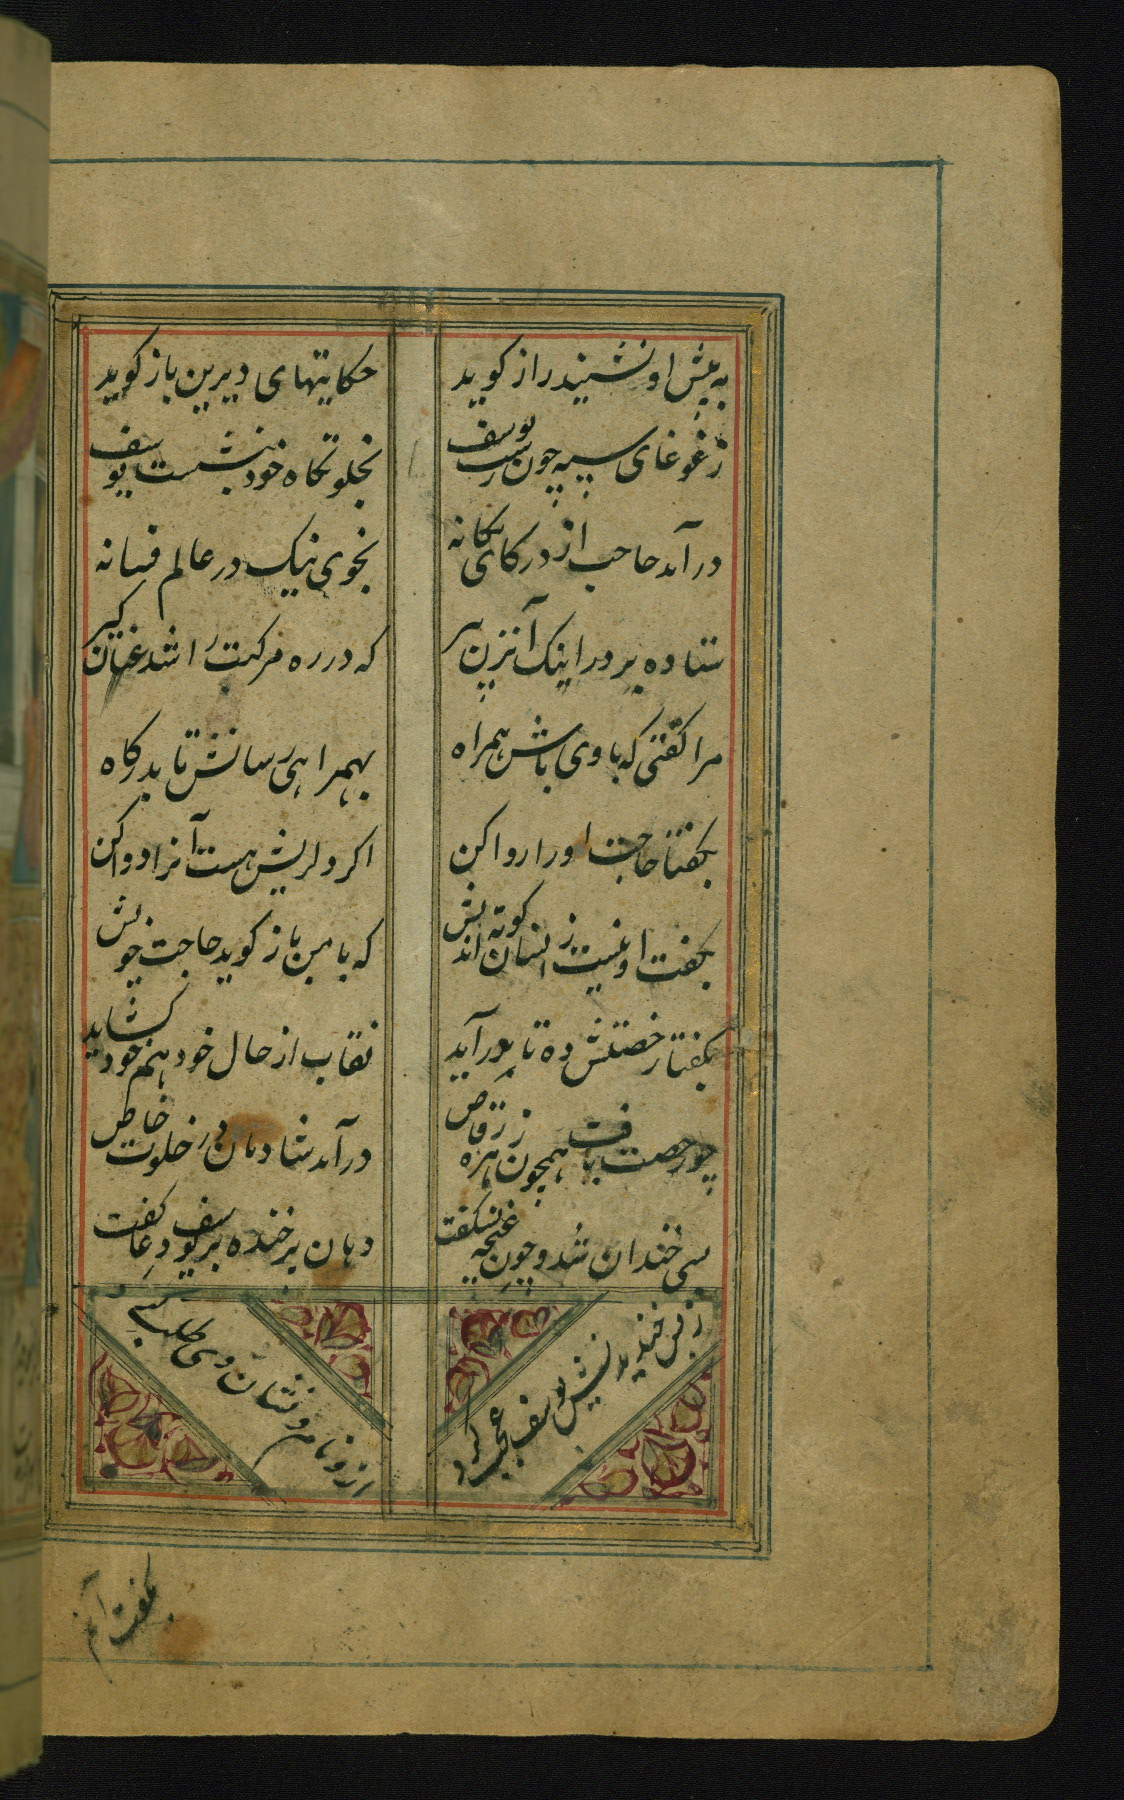 به پیش او نشیند راز کوید
حکایتهای دیرین باز کوید
ز غوغای سپه چون رست یوسف
بخلوتکاه خود بنشست یوسف
در آمد حاجب از در کای یکانه
بخوی نیک در عالم فسانه
ستاده بر در اینک آنزن پیر
که در ره مرکبت را شد عنان کیر
مرا کفتی که با وی باش همراه
بهمراهی رسانش تا بدرکاه
بکفتا حاجت او را روا کن
اکر دلریش هست آنرا دوا کن
بکفت او نیست ز انسان کوته اندیش
که با من باز کوید حاجت خویش
بکفتا رخصتش ده تا در آید
نقاب از حال خود هم خود کشاید
چو رخصت یافت همچون زره رقاص
در آمد شادمان در خلوت خاص
بسی خندان شد و چون غنچه بشکفت
دهان پر خنده بر یوسف دعا کفت
ز بس خندیدنش یوسف عجب کرد
ازو نام و نشان وی طلب کرد
بکفت آنم